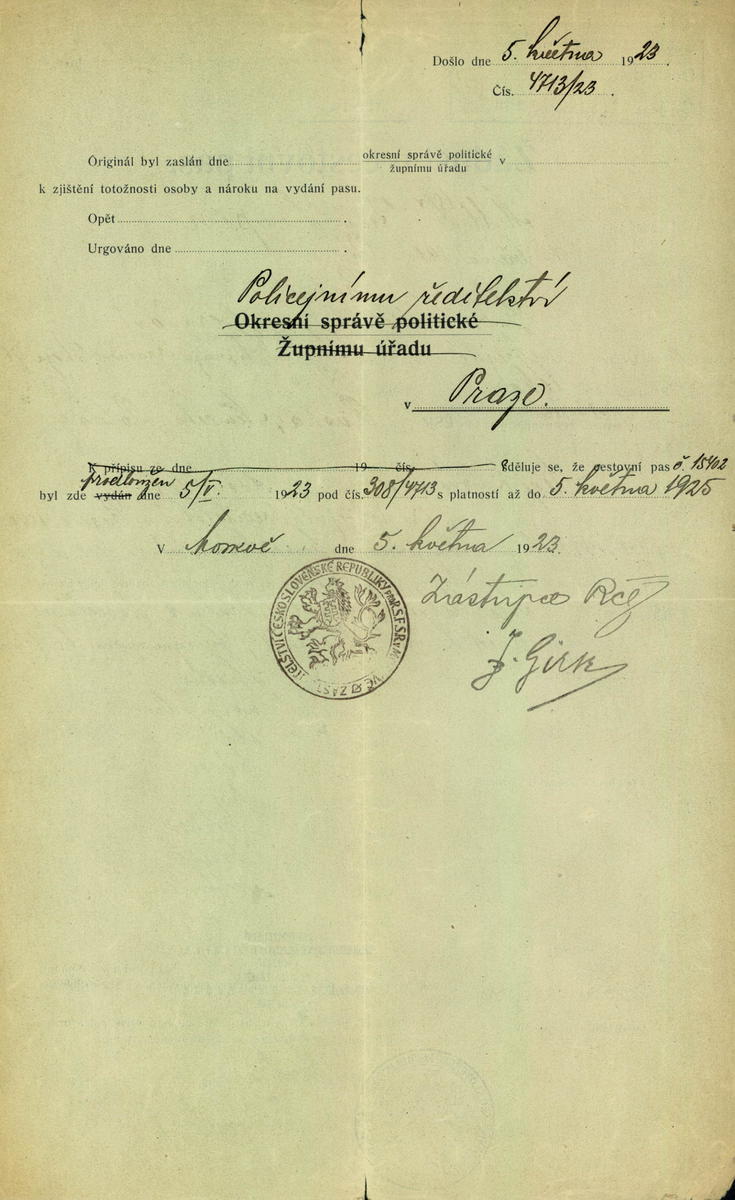 Došlo dne 5. května 1923.
Čís. 4713/23.
Originál byl zaslán dne okresní správě politické v
župnímu úřadu
k zjištění totožnosti osoby a nároku na vydání pasu.
Opět .
Urgováno dne .
Policejnímu ředitelství
Okresní správě politické
Župnímu úřadu
v Praze.
K přípisu ze dne 19 čís. Sděluje se, že cestovní pas č. 15402
prodloužen
byl zde vydán dne 5/V. 1923 pod čís. 308/4713 s platností až do 5. května 1925
V Moskvě dne 5. května 1923.
ČESKOSLOVENSKÉ REPUBLIKY PŘI R.S.F.S.R. v M
Zástupce RČS
J. Girk